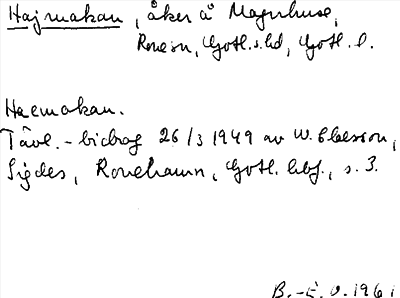 Hajmakan, åker å Magnhuse,
Rone sn, Gotl. s. hd, Gotl. l.
Haemakan.
Tävl.-bidrag 26/3 1949 av W. Ellesson,
Sigdes, Ronehamn, Gotl. s. 3.
B.-E. O. 1961